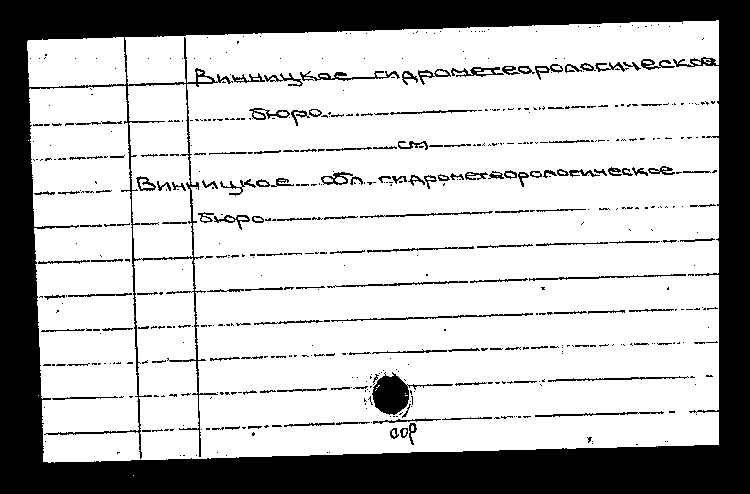 Винницкое гидрометеорологическое
бюро.
см
Винницкое обл. гидрометеорологическое
бюро
сор